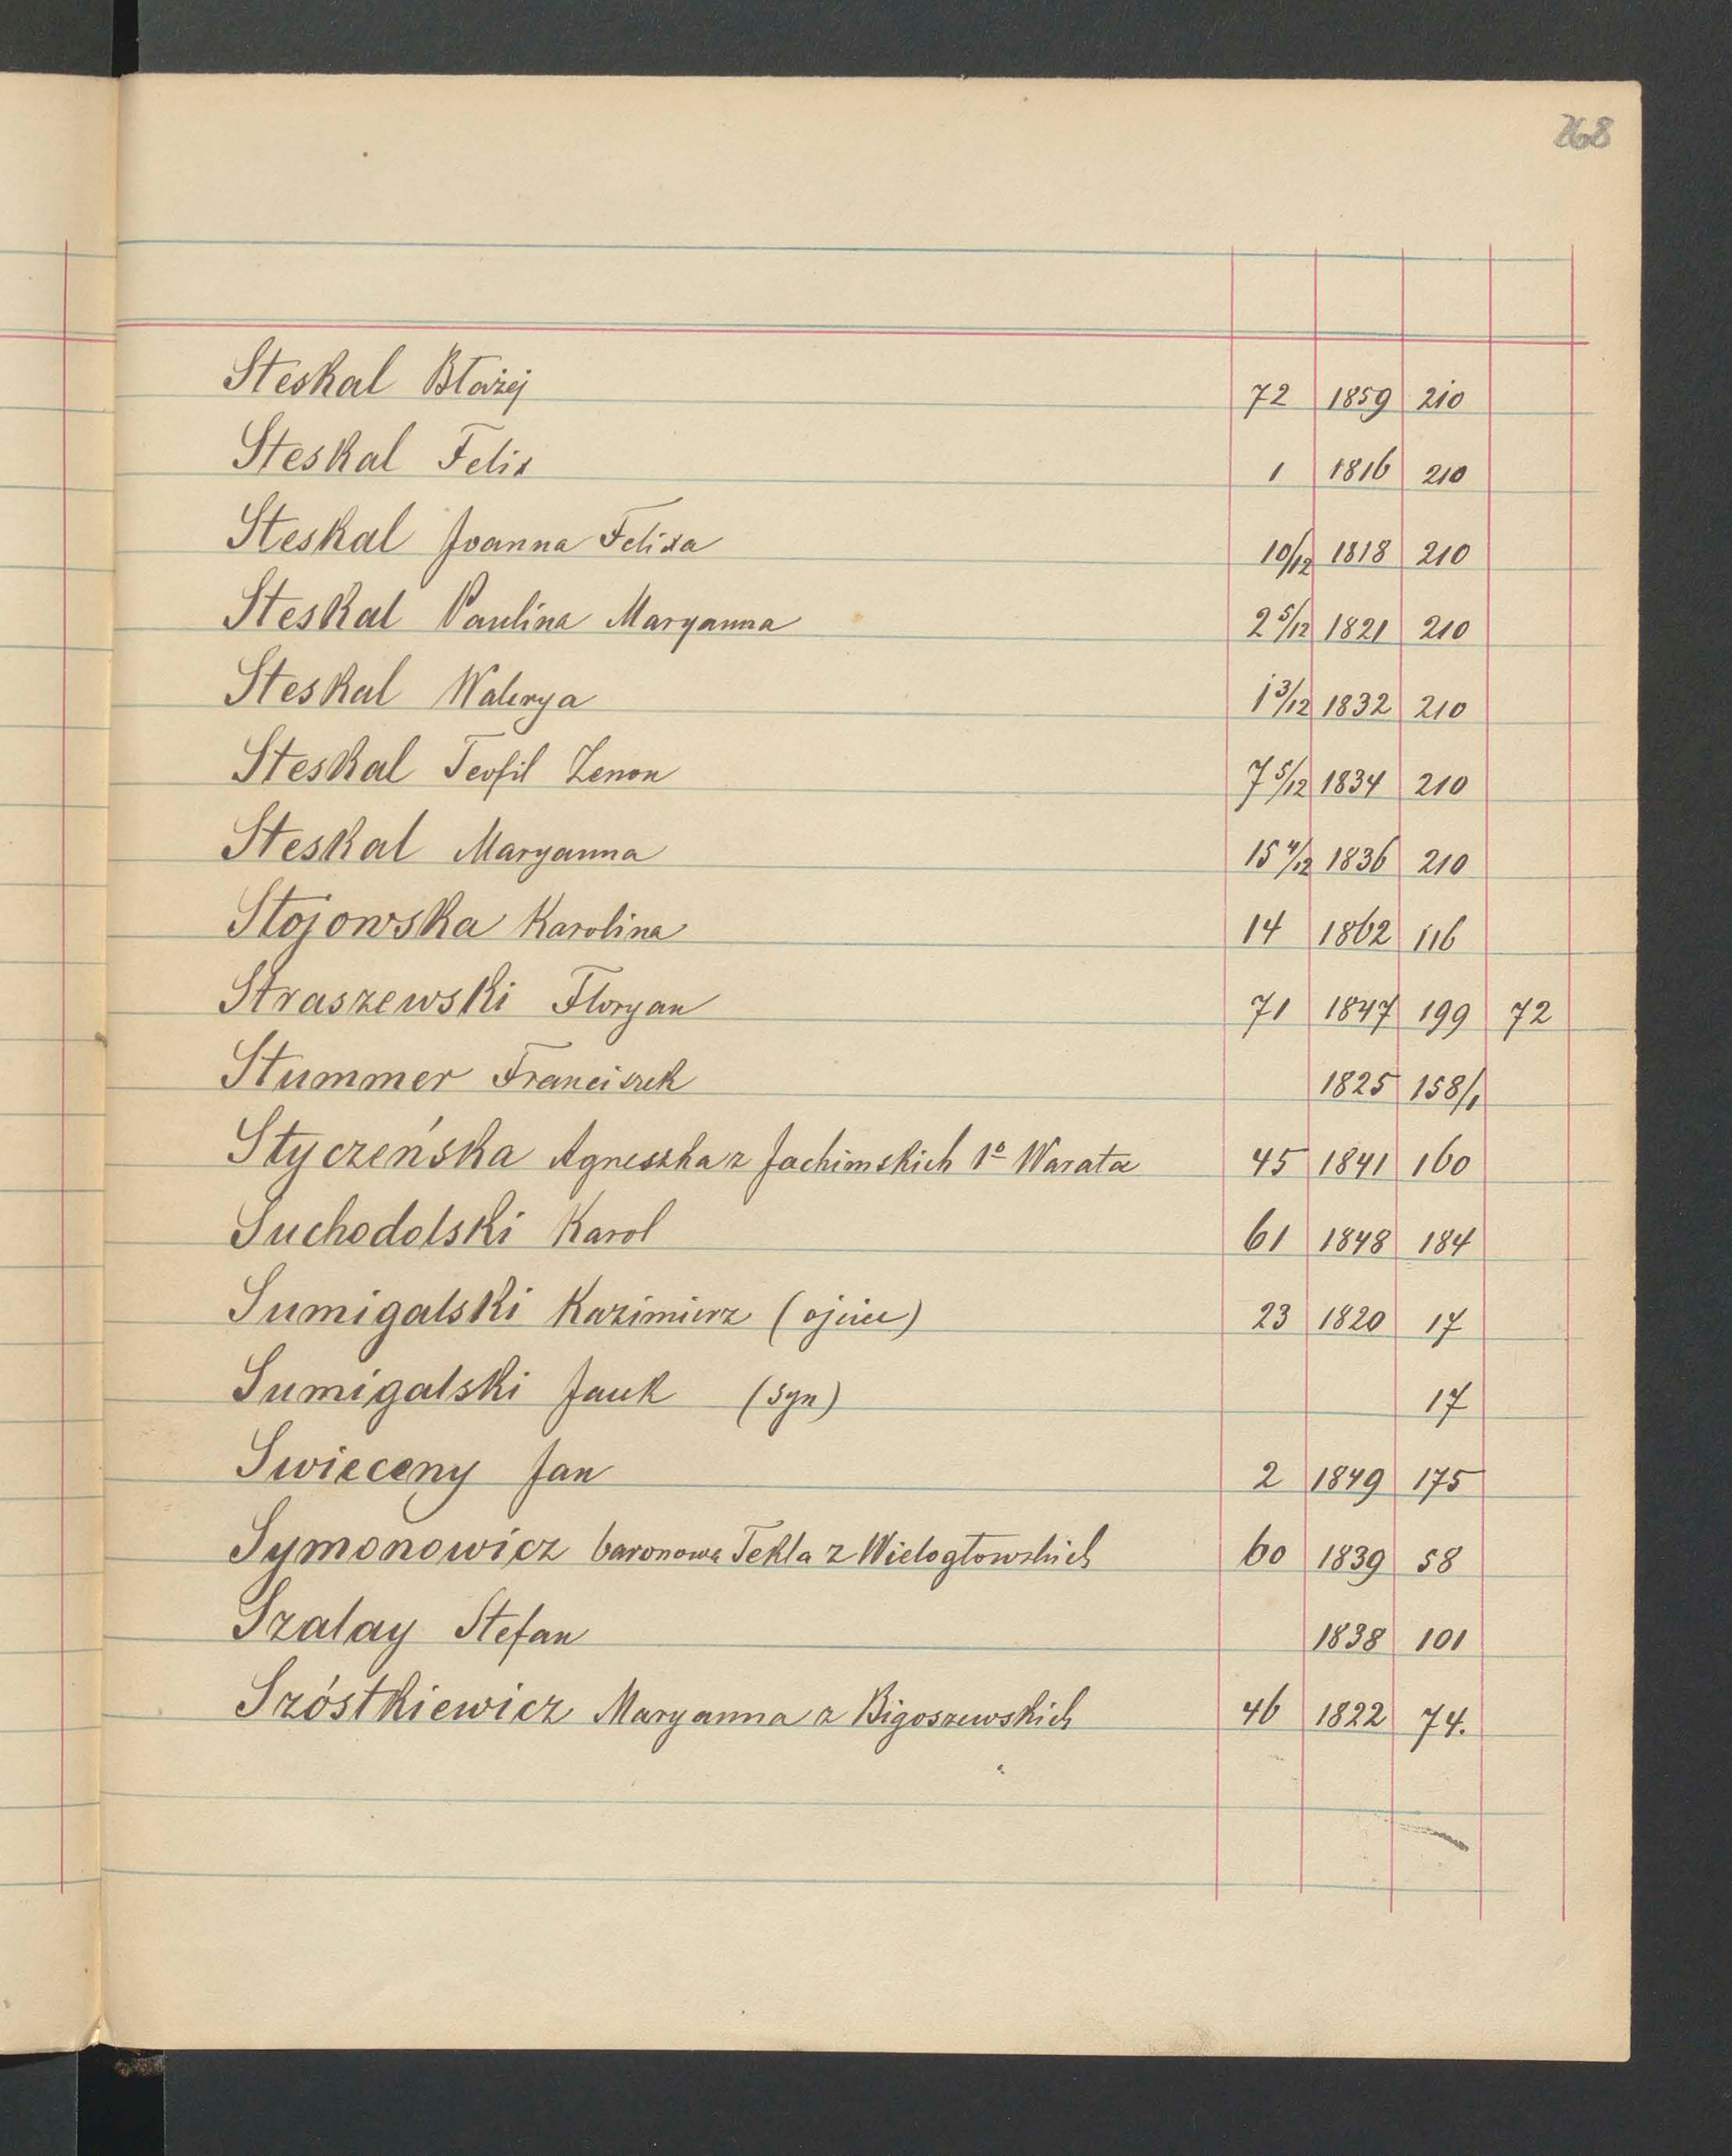 268
Steskal Błażej 72 1859 210
Steskal Felix 1 1816 210
Steskal Joanna Felixa 10/12 1818 210
Steskal Paulina Maryanna 2 5/12 1821 210
Steskal Walerya 1 3/12 1832 210
Steskal Teofil Zenon 7 5/12 1834 210
Steskal Maryanna 15 4/12 1836 210
Stojowska Karolina 14 1862 116
Straszewski Floryan 71 1847 199 72
Stummer Franciszek 1825 158/1
Styczeńska Agneszka z Jachimskich 1º Warata 45 1841 160
Suchodolski Karol 61 1848 184
Sumigalski Kazimierz (ojciec) 23 1820 17
Sumigalski Jacek (syn) 17
Swieceny Jan 2 1849 175
Symonowicz baronowa Tekla z Wielogłowskich 60 1839 58
Szalay Stefan 1838 101
Szóstkiewicz Maryanna z Bigoszewskich 46 1822 74.